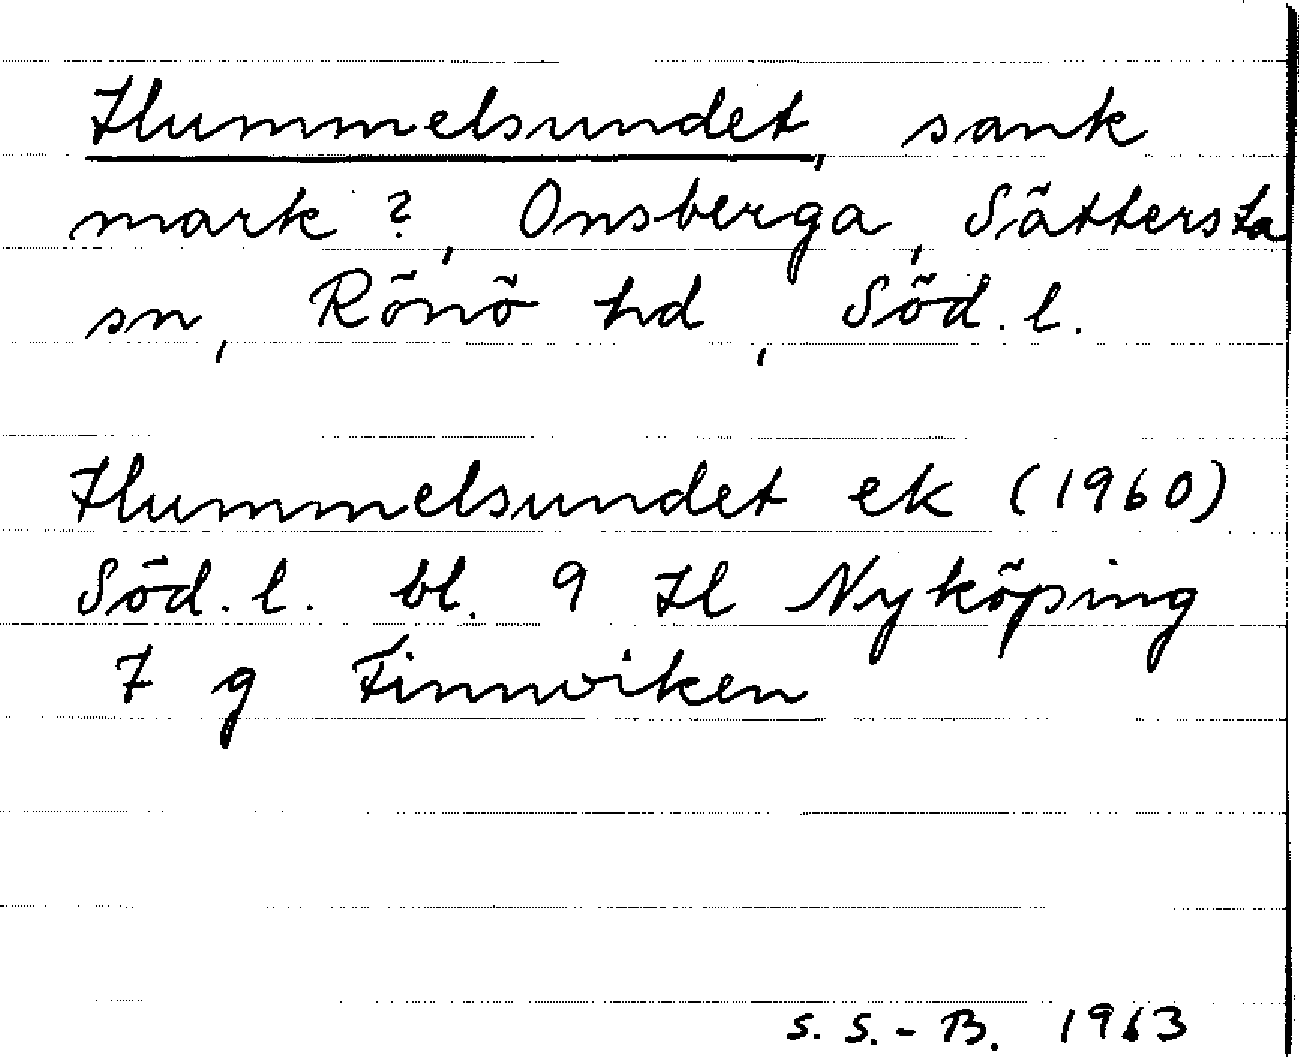 Hummelsundet, sank
mark ?, Onsberga, Sättersta
sn, Rönö hd, Söd. l.
Hummelsundet ek (1960)
Söd. l. bl. 9 H Nyköping
7 g Finnviken
S. S.-B. 1963